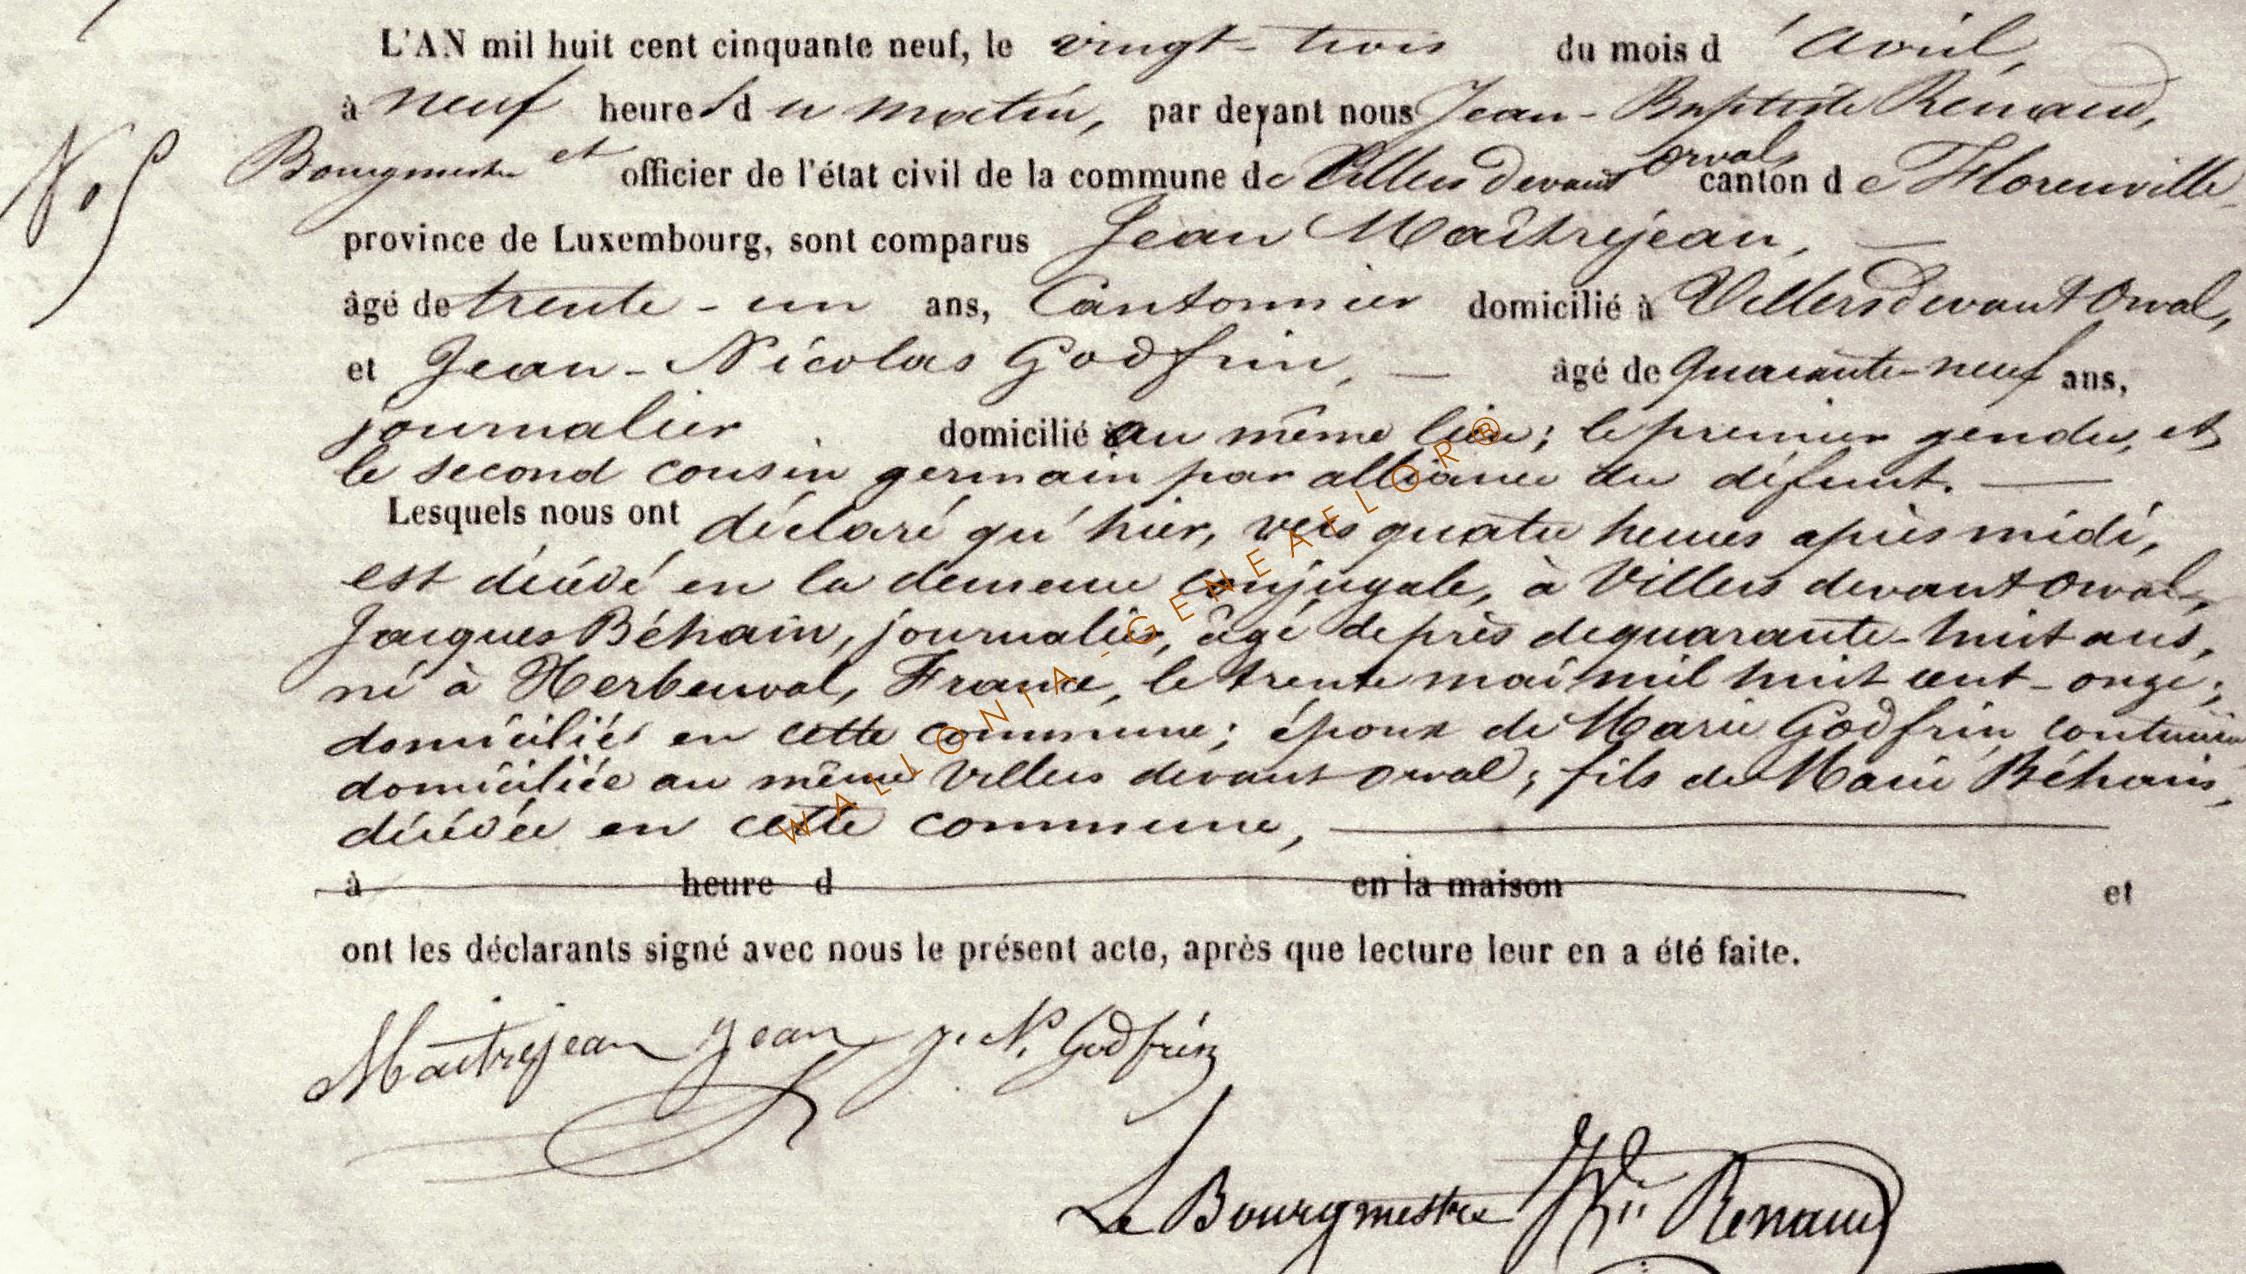 L'AN mil huit cent cinquante neuf, le vingt-trois du mois d'avril,
à neuf heures du matin, par devant nous Jean-Baptiste Renaud,
Bourgmestre et officier de l'état civil de la commune de Villers devant Orval, canton de Florenville,
N° 5
province de Luxembourg, sont comparus Jean Maîtrejean, —
âgé de trente-un ans, Cantonnier domicilié à Villers devant Orval,
et Jean-Nicolas Godfrin, — âgé de quarante-neuf ans,
journalier domicilié au même lieu; le premier gendre, et
le second cousin germain par alliance du défunt. —
Lesquels nous ont déclaré qu'hier, vers quatre heures après midi,
est décédé en la demeure conjugale, à Villers devant Orval,
Jacques Béhain, journalier, âgé de près de quarante-huit ans,
né à Herbeuval, France, le trente mai mil huit cent-onze;
domicilié en cette commune; époux de Marie Godfrin
domiciliée au même Villers devant Orval; fils de Marie Béhain,
décédée en cette commune, —
à heure d en la maison et
ont les déclarants signé avec nous le présent acte, après que lecture leur en a été faite.
Maitrejean Jean J. N. Godfrin
Le Bourgmestre Renaud
WALLONIA-GENEAFLOR®